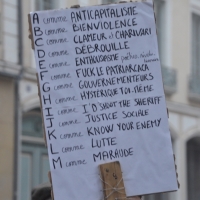 A comme ANTICAPITALISME
B comme BIENVIOLENCE
C comme CLAMEUR et CHARIVARI
D comme DÉBROUILLE
E comme ENTHOUSIASME
F comme FUCK LE PATRIARCACA
G comme GOUVERNEMENTEURS
H comme HYSTÉRIQUE TOI-MÊME
I comme I'D SHOOT THE SHERIFF
J comme JUSTICE SOCIALE
K comme KNOW YOUR ENEMY
L comme LUTTE
M comme MARAUDE